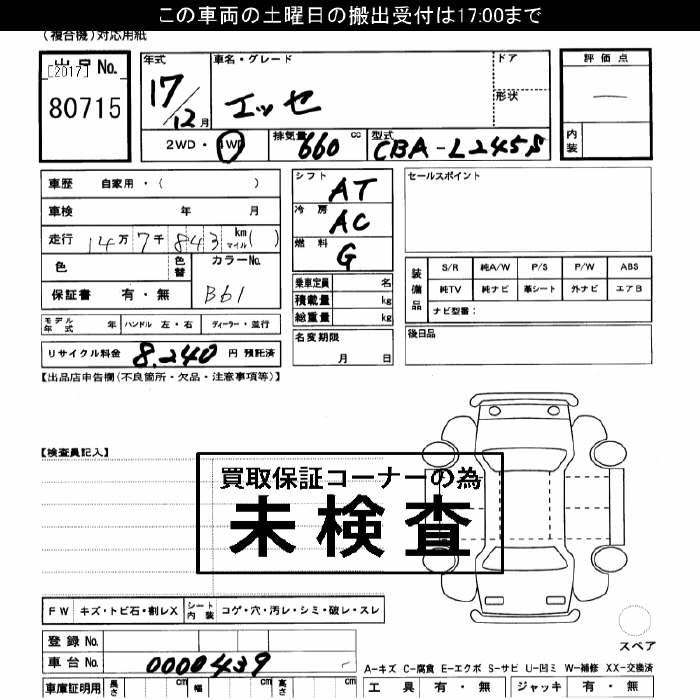 この車両の土曜日の搬出受付は17:00まで
(複合機)対応用紙
出品No. [2017] 80715
年式 17/12月
車名・グレード エッセ
ドア
形状
評価点 —
内装
2WD・4WD
排気量 660 cc
型式 CBA-L245S
車歴 自家用・( )
車検 年 月
走行 14万7千843 km マイル( )
色 色替 カラーNo. B61
保証書 有・無
シフト AT
冷房 AC
燃料 G
乗車定員 名
積載量 kg
総重量 kg
セールスポイント
装備品 S/R 純A/W P/S P/W ABS
純TV 純ナビ 革シート 外ナビ エアB
ナビ型番:
モデル年式 年 ハンドル 左・右 ディーラー・並行
名変期限 月 日
後日品
リサイクル料金 8,240 円 預託済
【出品店申告欄(不良箇所・欠品・注意事項等)】
【検査員記入】
買取保証コーナーの為
未検査
FW キズ・トビ石・割レX シート内装 コゲ・穴・汚レ・シミ・破レ・スレ
スペア
登録No.
車台No. 0000439
A-キズ C-腐食 E-エクボ S-サビ U-凹ミ W-補修 XX-交換済
車庫証明用 長さ cm 幅 cm 高さ cm
工具 有・無 ジャッキ 有・無